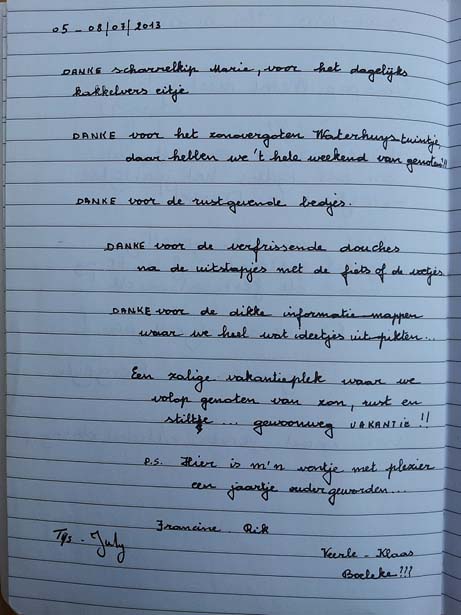 05 - 08/07/2013
DANKE scharrelkip Marie, voor het dagelijks
kakkelvers eitje
DANKE voor het zonovergoten Waterhuys tuintje,
daar hebben we 't hele weekend van genoten!!
DANKE voor de rustgevende bedjes.
DANKE voor de verfrissende douches
na de uitstapjes met de fiets of de voetjes
DANKE voor de dikke informatie-mappen
waar we heel wat ideetjes uit-pikten...
Een zalige vakantieplek waar we
volop genoten van zon, rust en
stilte ... gewoonweg VAKANTIE!!
P.S. Hier is m'n ventje met plezier
een jaartje ouder geworden...
Francine Rik
Tijs - July
Veerle - Klaas
Boeleke!!!